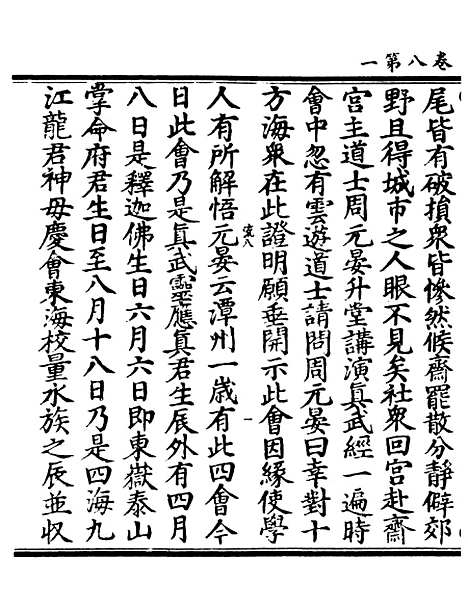 卷八第一
尾皆有破損衆皆慘然候齋罷散分靜僻郊
野且得城市之人眼不見矣社衆回宮赴齋
宮主道士周元晏升堂講演真武經一遍時
會中忽有雲遊道士請問周元晏曰幸對十
方海衆在此證明願垂開示此會因緣使學
人有所解悟元晏云潭州一歲有此四會今
日此會乃是真武靈應真君生辰外有四月
八日是釋迦佛生日六月六日即東嶽泰山
掌命府君生日至八月十八日乃是四海九
江龍君神毋慶會東海校量水族之辰並収